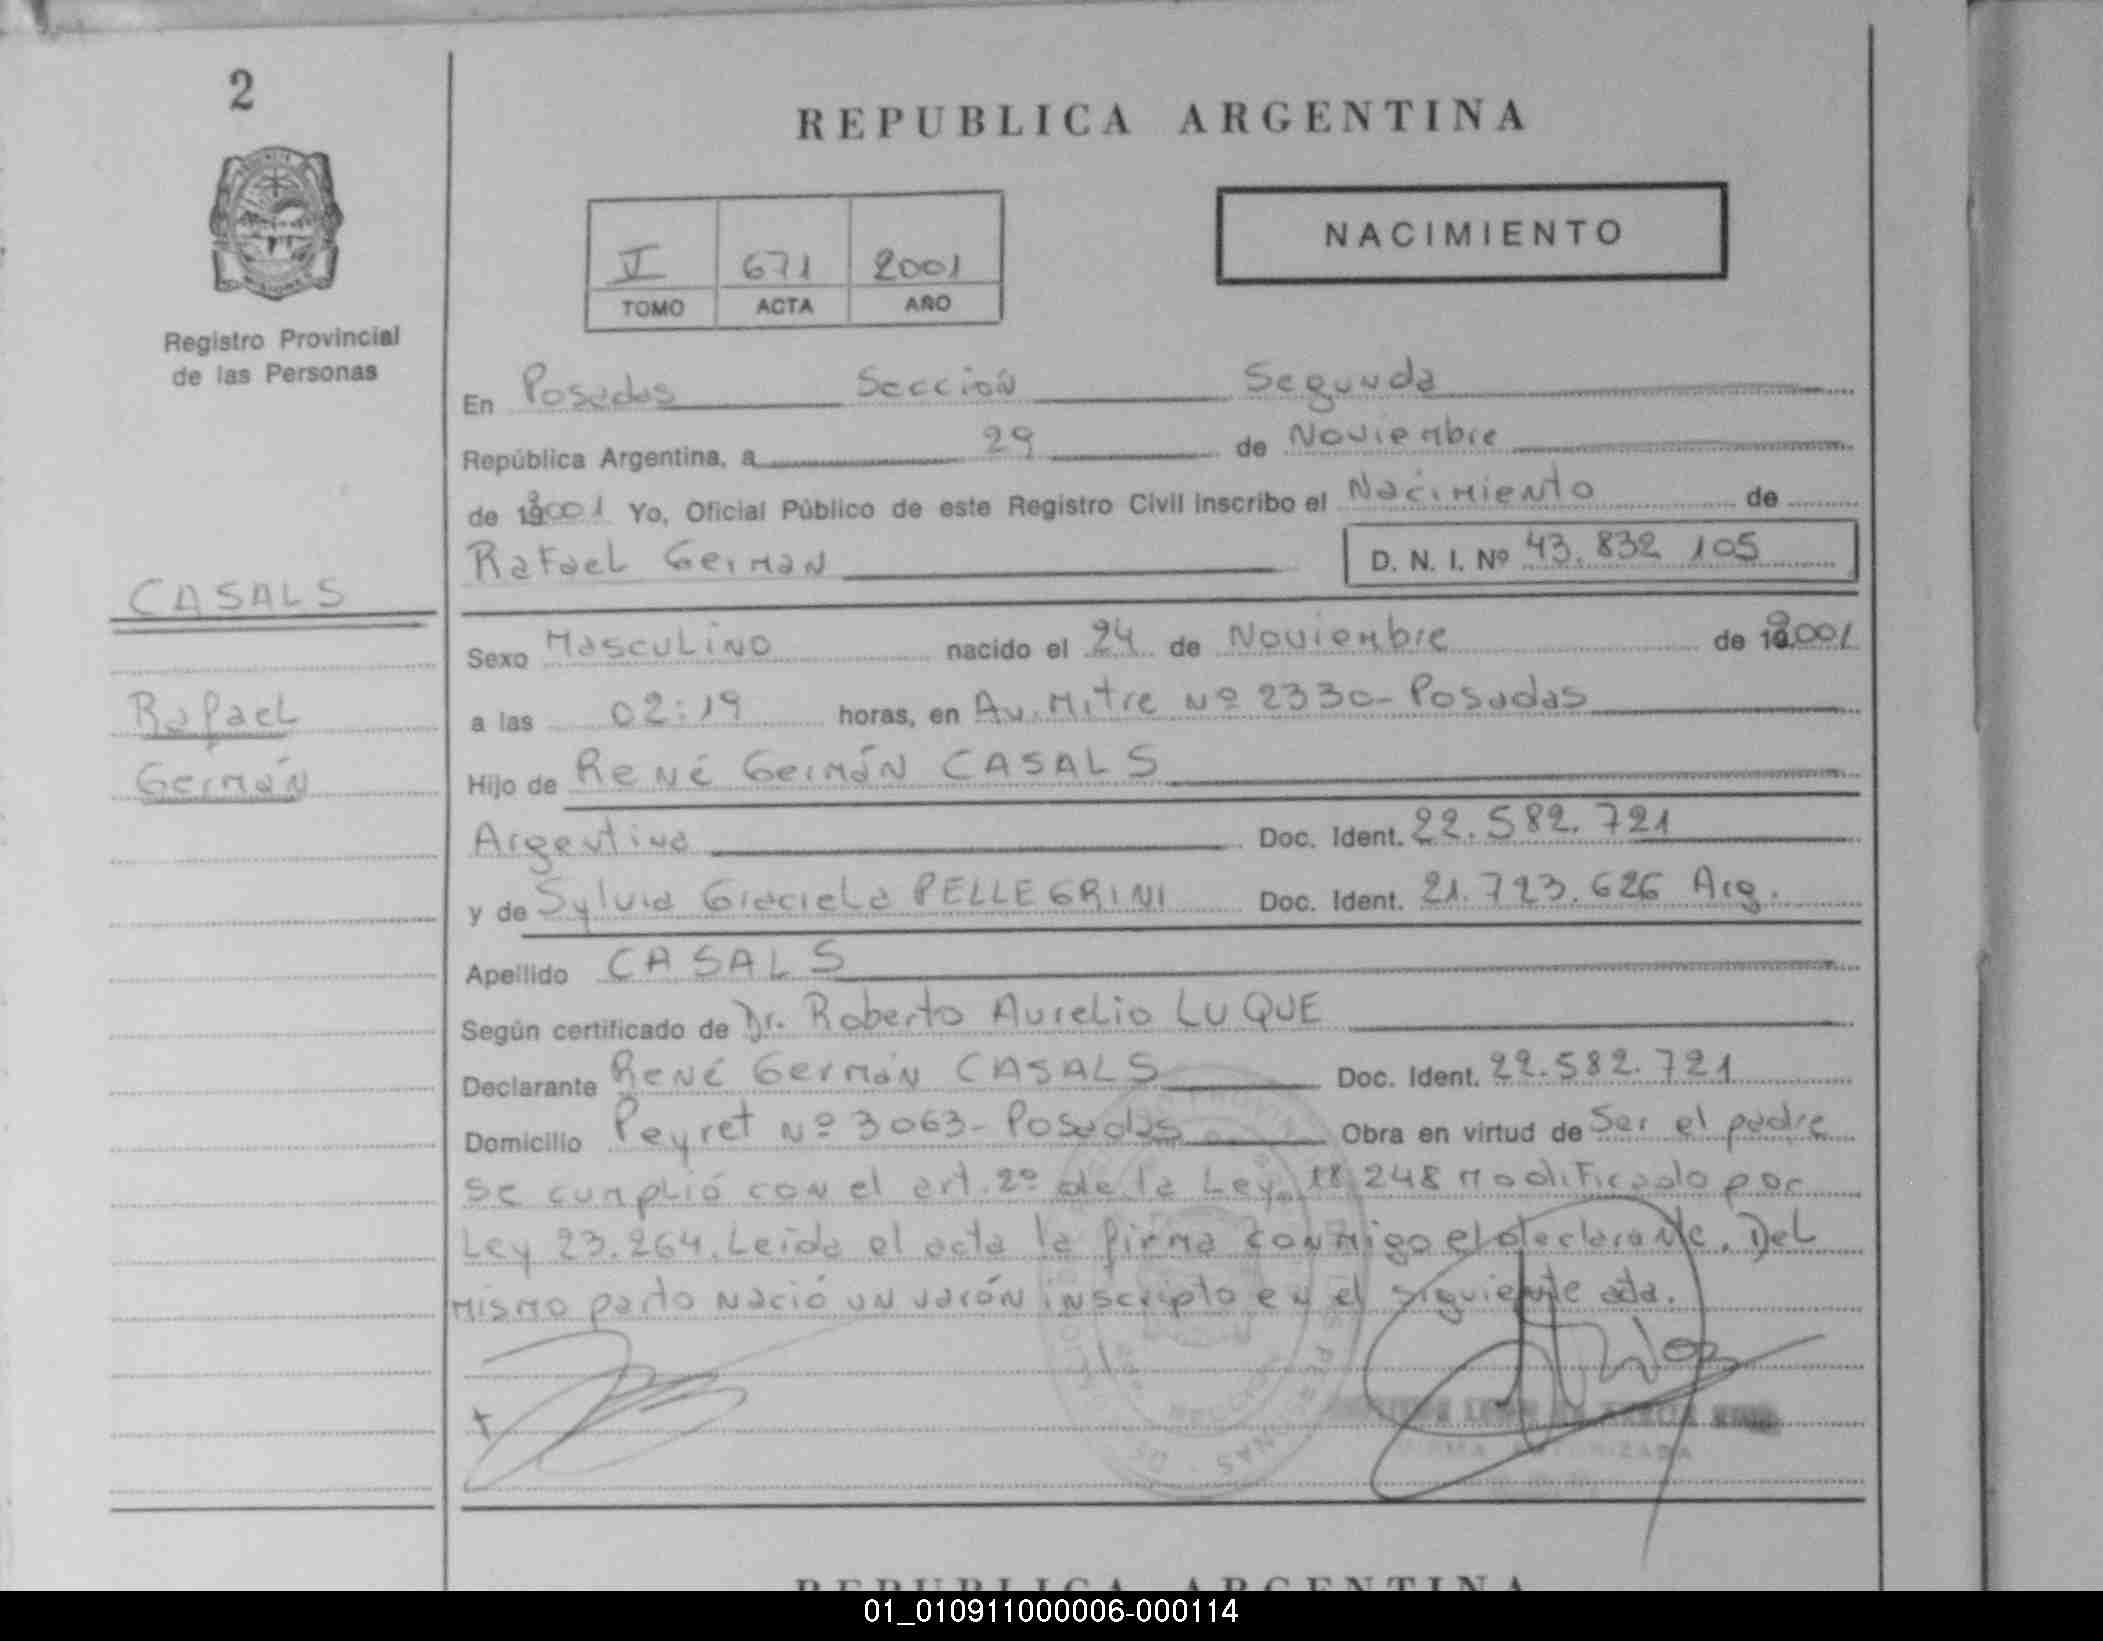 2
REPUBLICA ARGENTINA
NACIMIENTO
V 671 2001
TOMO ACTA AÑO
Registro Provincial
de las Personas
En Posadas Sección Segunda
República Argentina, a 29 de Noviembre
de 2001 Yo, Oficial Público de este Registro Civil inscribo el Nacimiento de
Rafael Germán D. N. I. Nº 43.832 105
CASALS
Rafael
Germán
Sexo Masculino nacido el 24 de Noviembre de 2001
a las 02:19 horas, en Av. Mitre Nº 2330- Posadas
Hijo de René Germán CASALS
Argentino Doc. Ident. 22.582.721
y de Sylvia Graciela PELLEGRINI Doc. Ident. 21.723.626 Arg.
Apellido CASALS
Según certificado de Dr. Roberto Aurelio LUQUE
Declarante René Germán CASALS Doc. Ident. 22.582.721
Domicilio Peyret Nº 3063- Posadas Obra en virtud de Ser el padre
se cumplió con el art. 2º de la Ley 18 248 modificado por
Ley 23.264. Leída el acta la firma conmigo el declarante. Del
mismo parto nació un varón inscripto en el siguiente acta.
REPUBLICA ARGENTINA
01_010911000006-000114